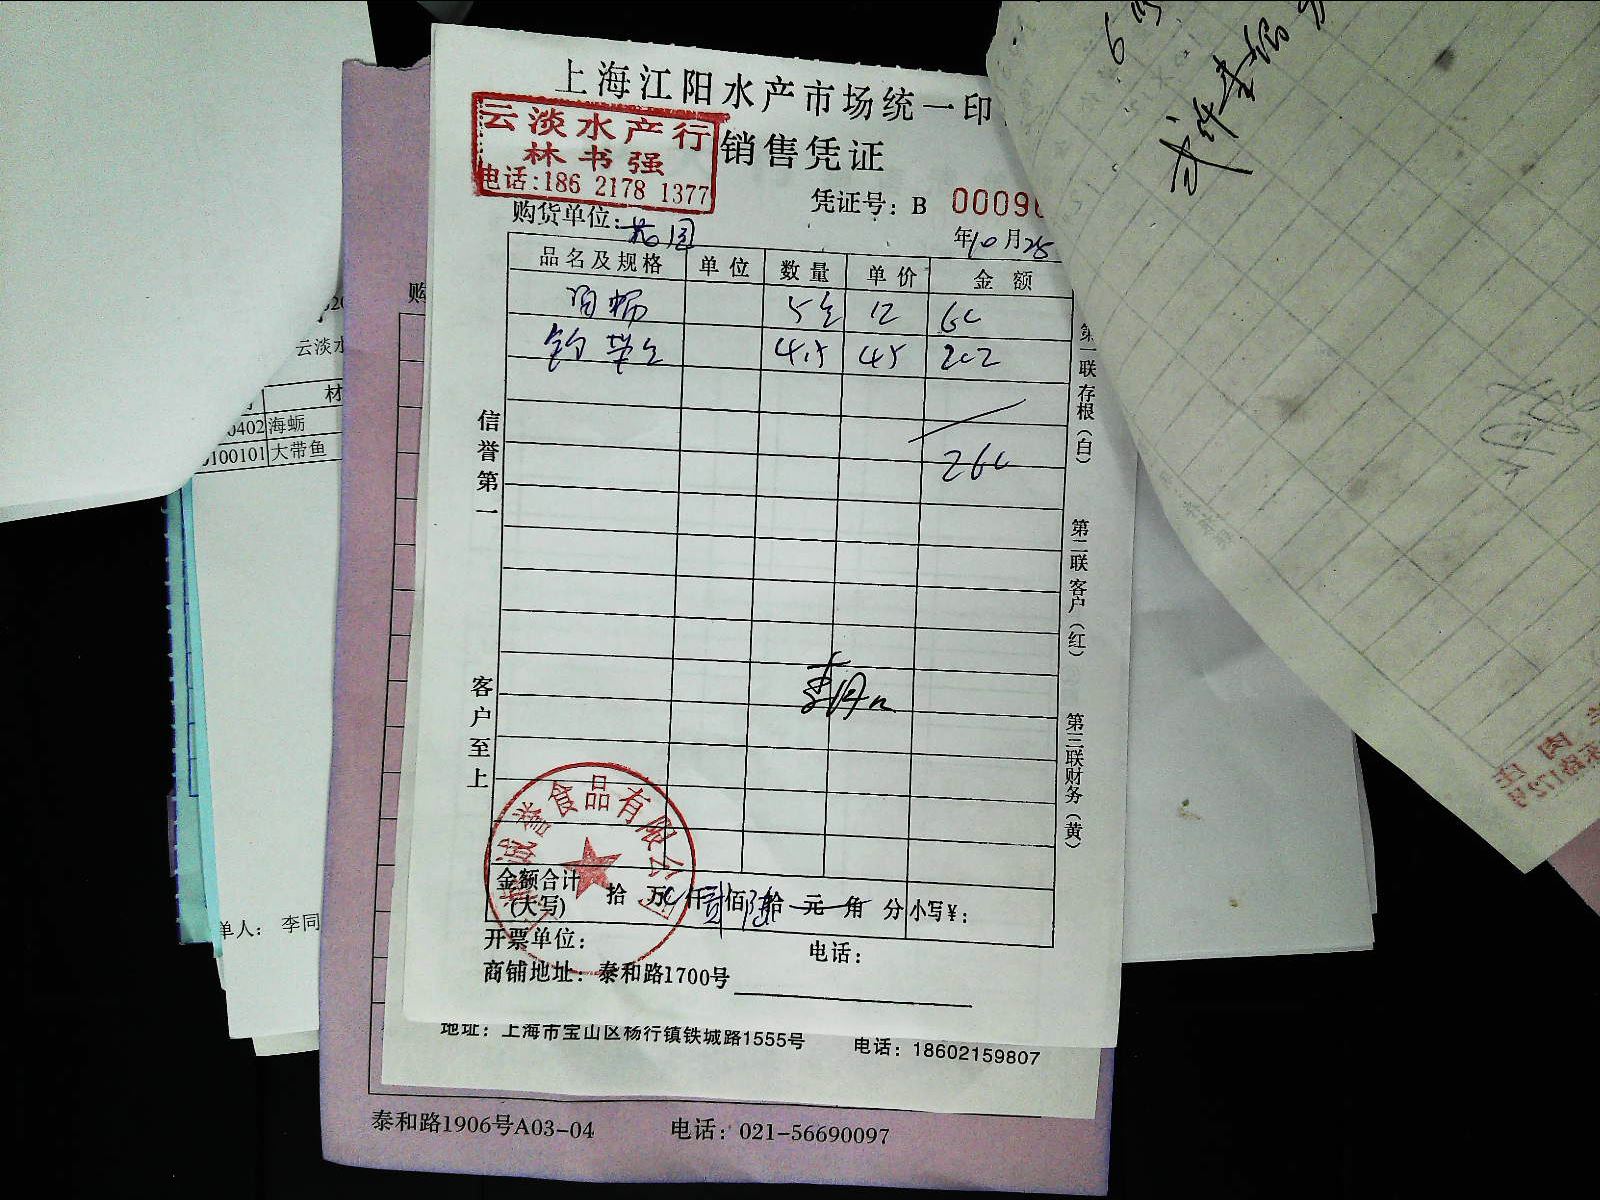 上海江阳水产市场统一印
云淡水产行
林书强
电话:186 2178 1377
销售凭证
凭证号: B 0009
购货单位:
年10月25
品名及规格 单位 数量 单价 金额
5 12 60
钓带 4.5 45 202
260
信誉第一
客户至上
第一联存根(白)
第二联客户(红)
第三联财务(黄)
誉食品有限公司
金额合计
(大写) 拾 万 仟 贰 佰 陆 拾 元 角 分 小写¥:
开票单位: 电话:
商铺地址: 泰和路1700号
地址: 上海市宝山区杨行镇铁城路1555号 电话: 18602159807
泰和路1906号A03-04 电话: 021-56690097
购
云淡水
材
0402 海蛎
0100101 大带鱼
单人: 李同